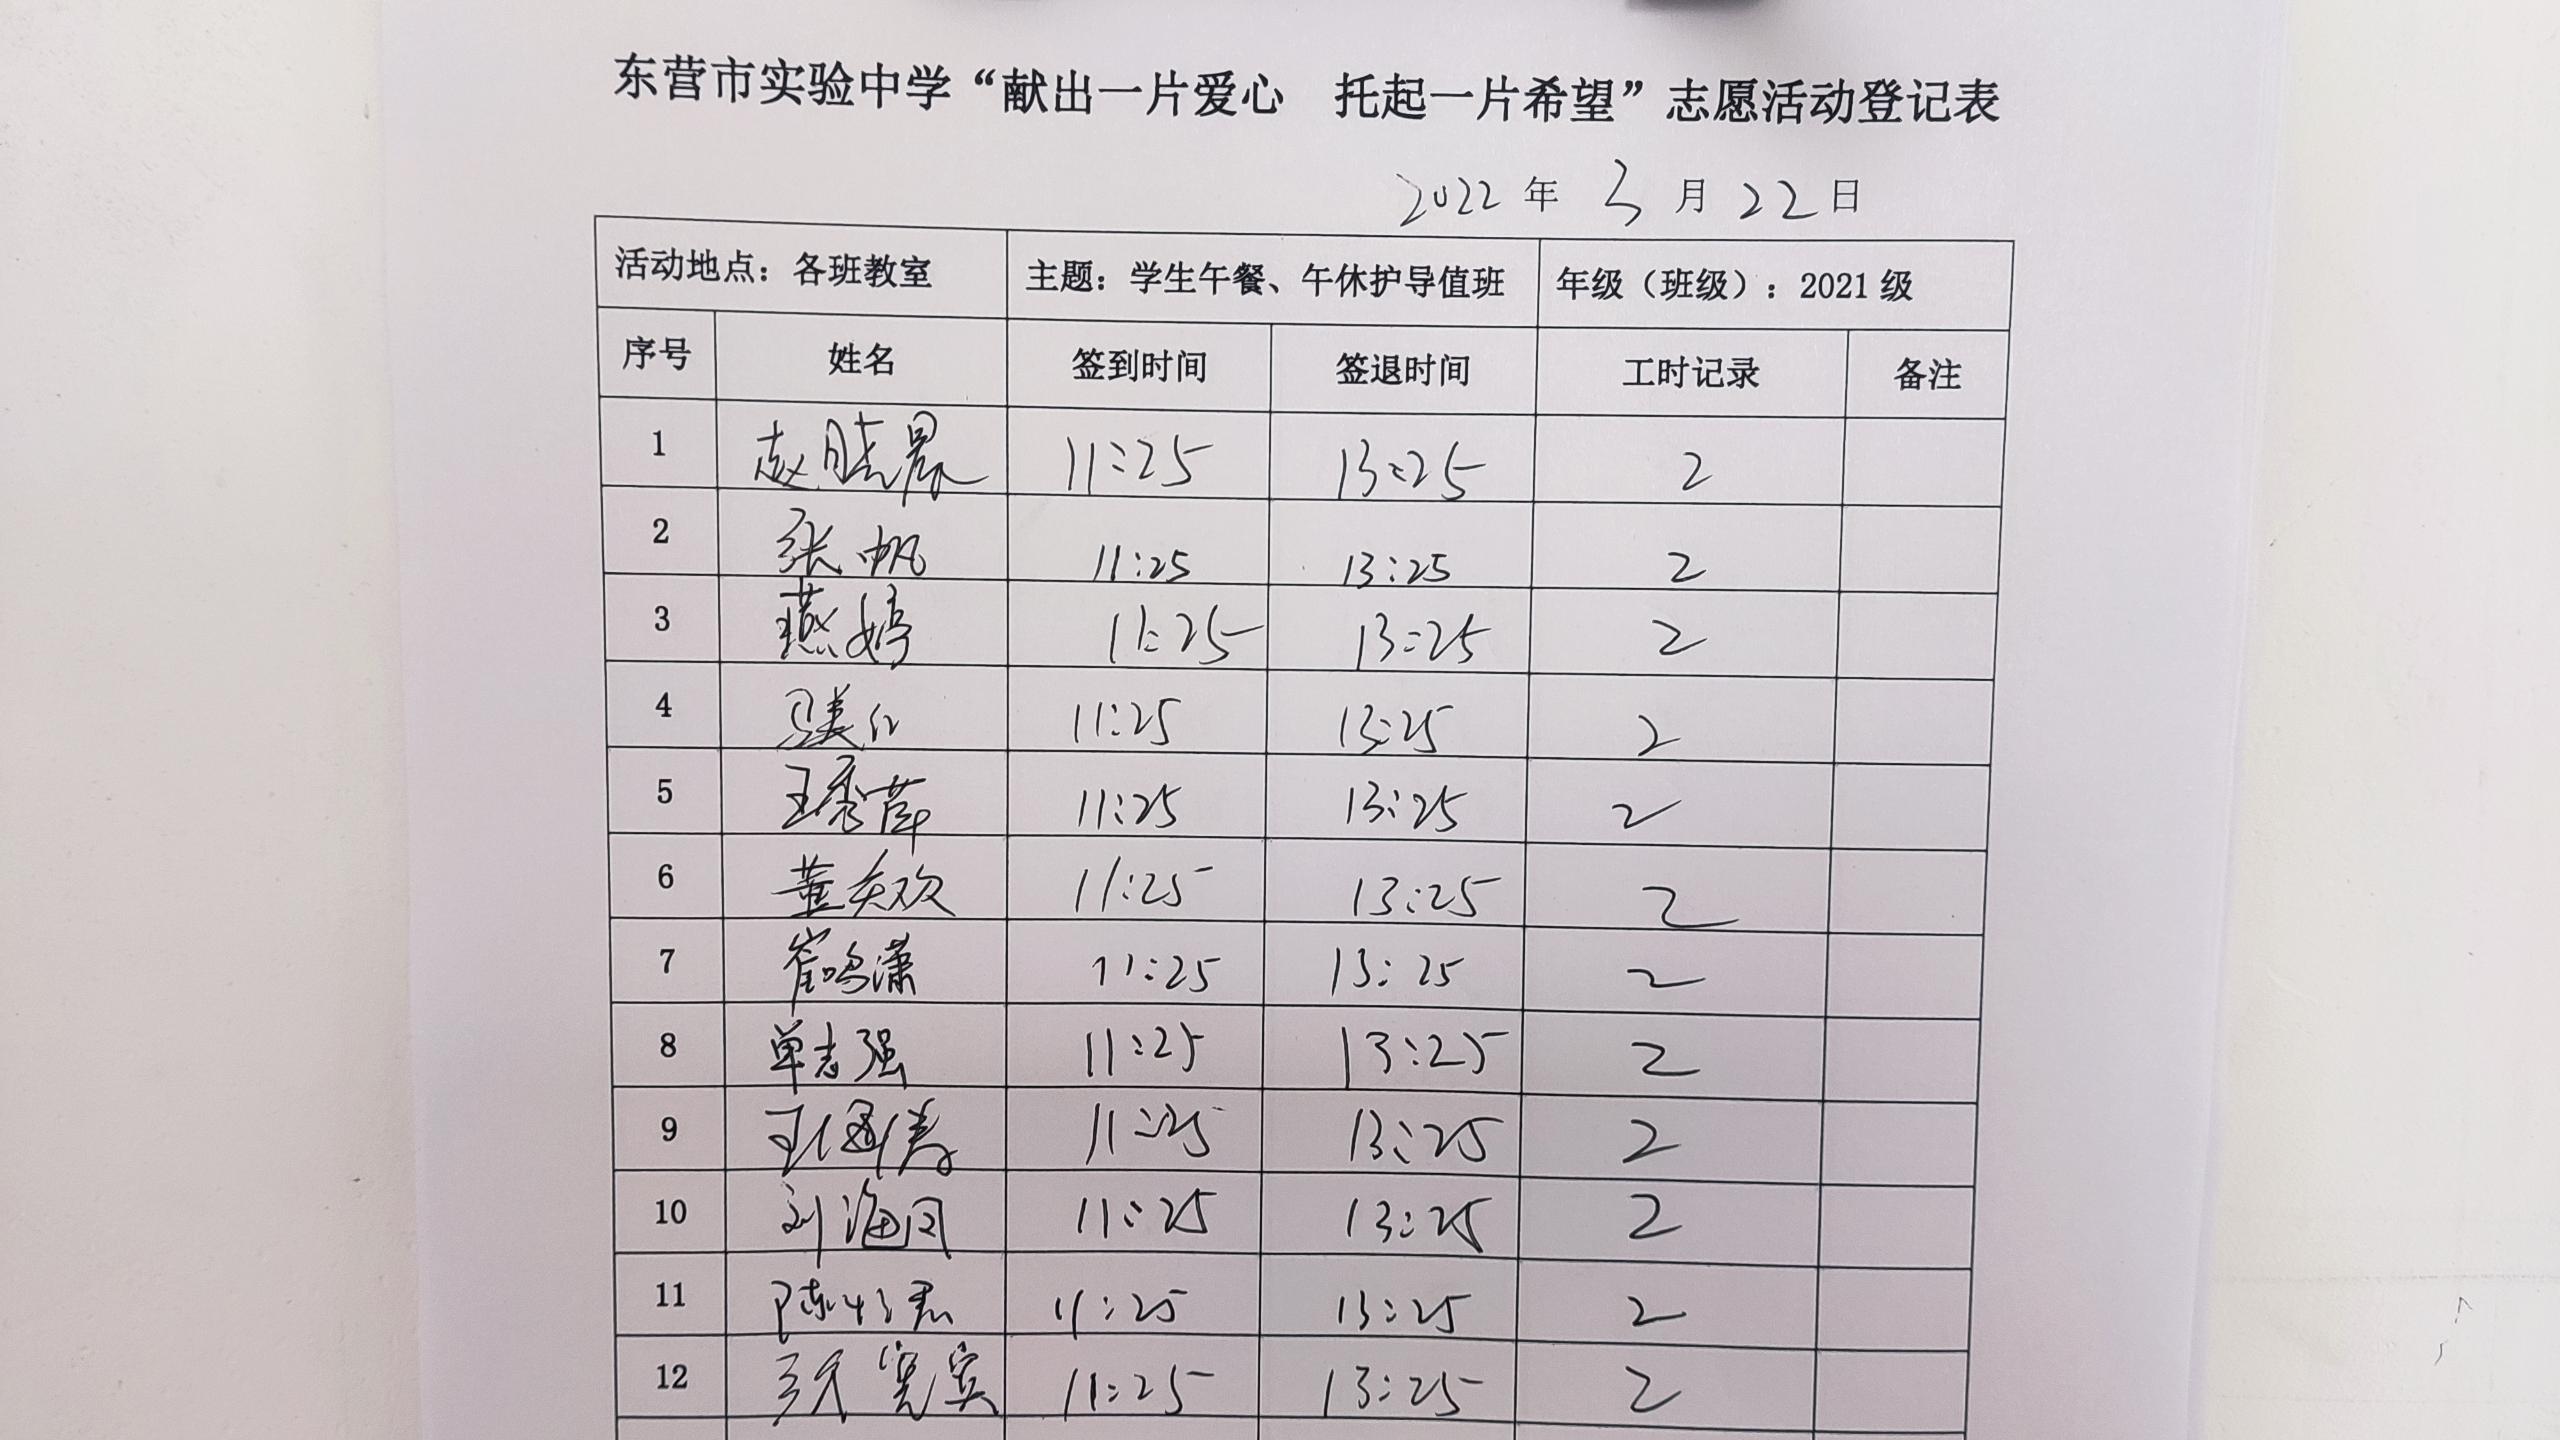 东营市实验中学“献出一片爱心 托起一片希望”志愿活动登记表
2022 年 3 月 22 日
活动地点：各班教室 主题：学生午餐、午休护导值班 年级（班级）：2021 级
序号 姓名 签到时间 签退时间 工时记录 备注
1 赵晓晨 11:25 13:25 2
2 张帆 11:25 13:25 2
3 王燕婷 11:25 13:25 2
4 11:25 13:25 2
5 王秀萍 11:25 13:25 2
6 董欢欢 11:25 13:25 2
7 崔鸣潇 11:25 13:25 2
8 单志强 11:25 13:25 2
9 11:25 13:25 2
10 刘海凤 11:25 13:25 2
11 11:25 13:25 2
12 11:25 13:25 2